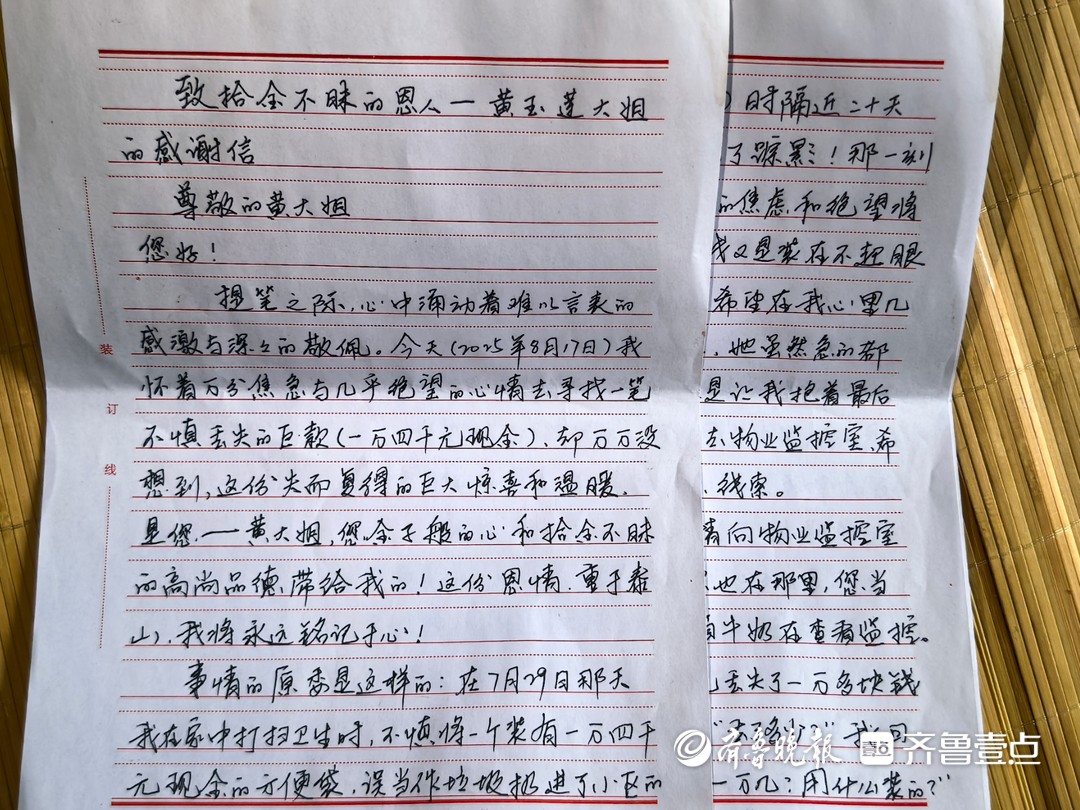 致拾金不昧的恩人一黄玉莲大姐
的感谢信
尊敬的黄大姐
您好！
提笔之际，心中涌动着难以言表的
感激与深々的敬佩。今天（2025年8月17日）我
怀着万分焦急与几乎绝望的心情去寻找一笔
不慎丢失的巨款（一万四千元现金）、却万万没
想到，这份失而复得的巨大惊喜和温暖，
是您一黄大姐，您金子般的心和拾金不昧
的高尚品德，带给我的！这份恩情，重于泰
山、我将永远铭记于心！
事情的原委是这样的：在7月29日那天
我在家中打扫卫生时，不慎将一个装有一万四千
元现金的方便袋，误当作垃圾扔进了小区的
装
订
线
时隔近二十天
了踪影！那一刻
的焦虑和绝望将
我又是装在不起眼
希望在我心里几
，她虽然急的都
是让我抱着最后
去物业监控室，希
、线索。
着向物业监控室
也在那里，您当
牛奶在查看监控。
丢失了一万多块钱
我回
一万几？用什么装的？”
齐鲁晚报
齐鲁壹点